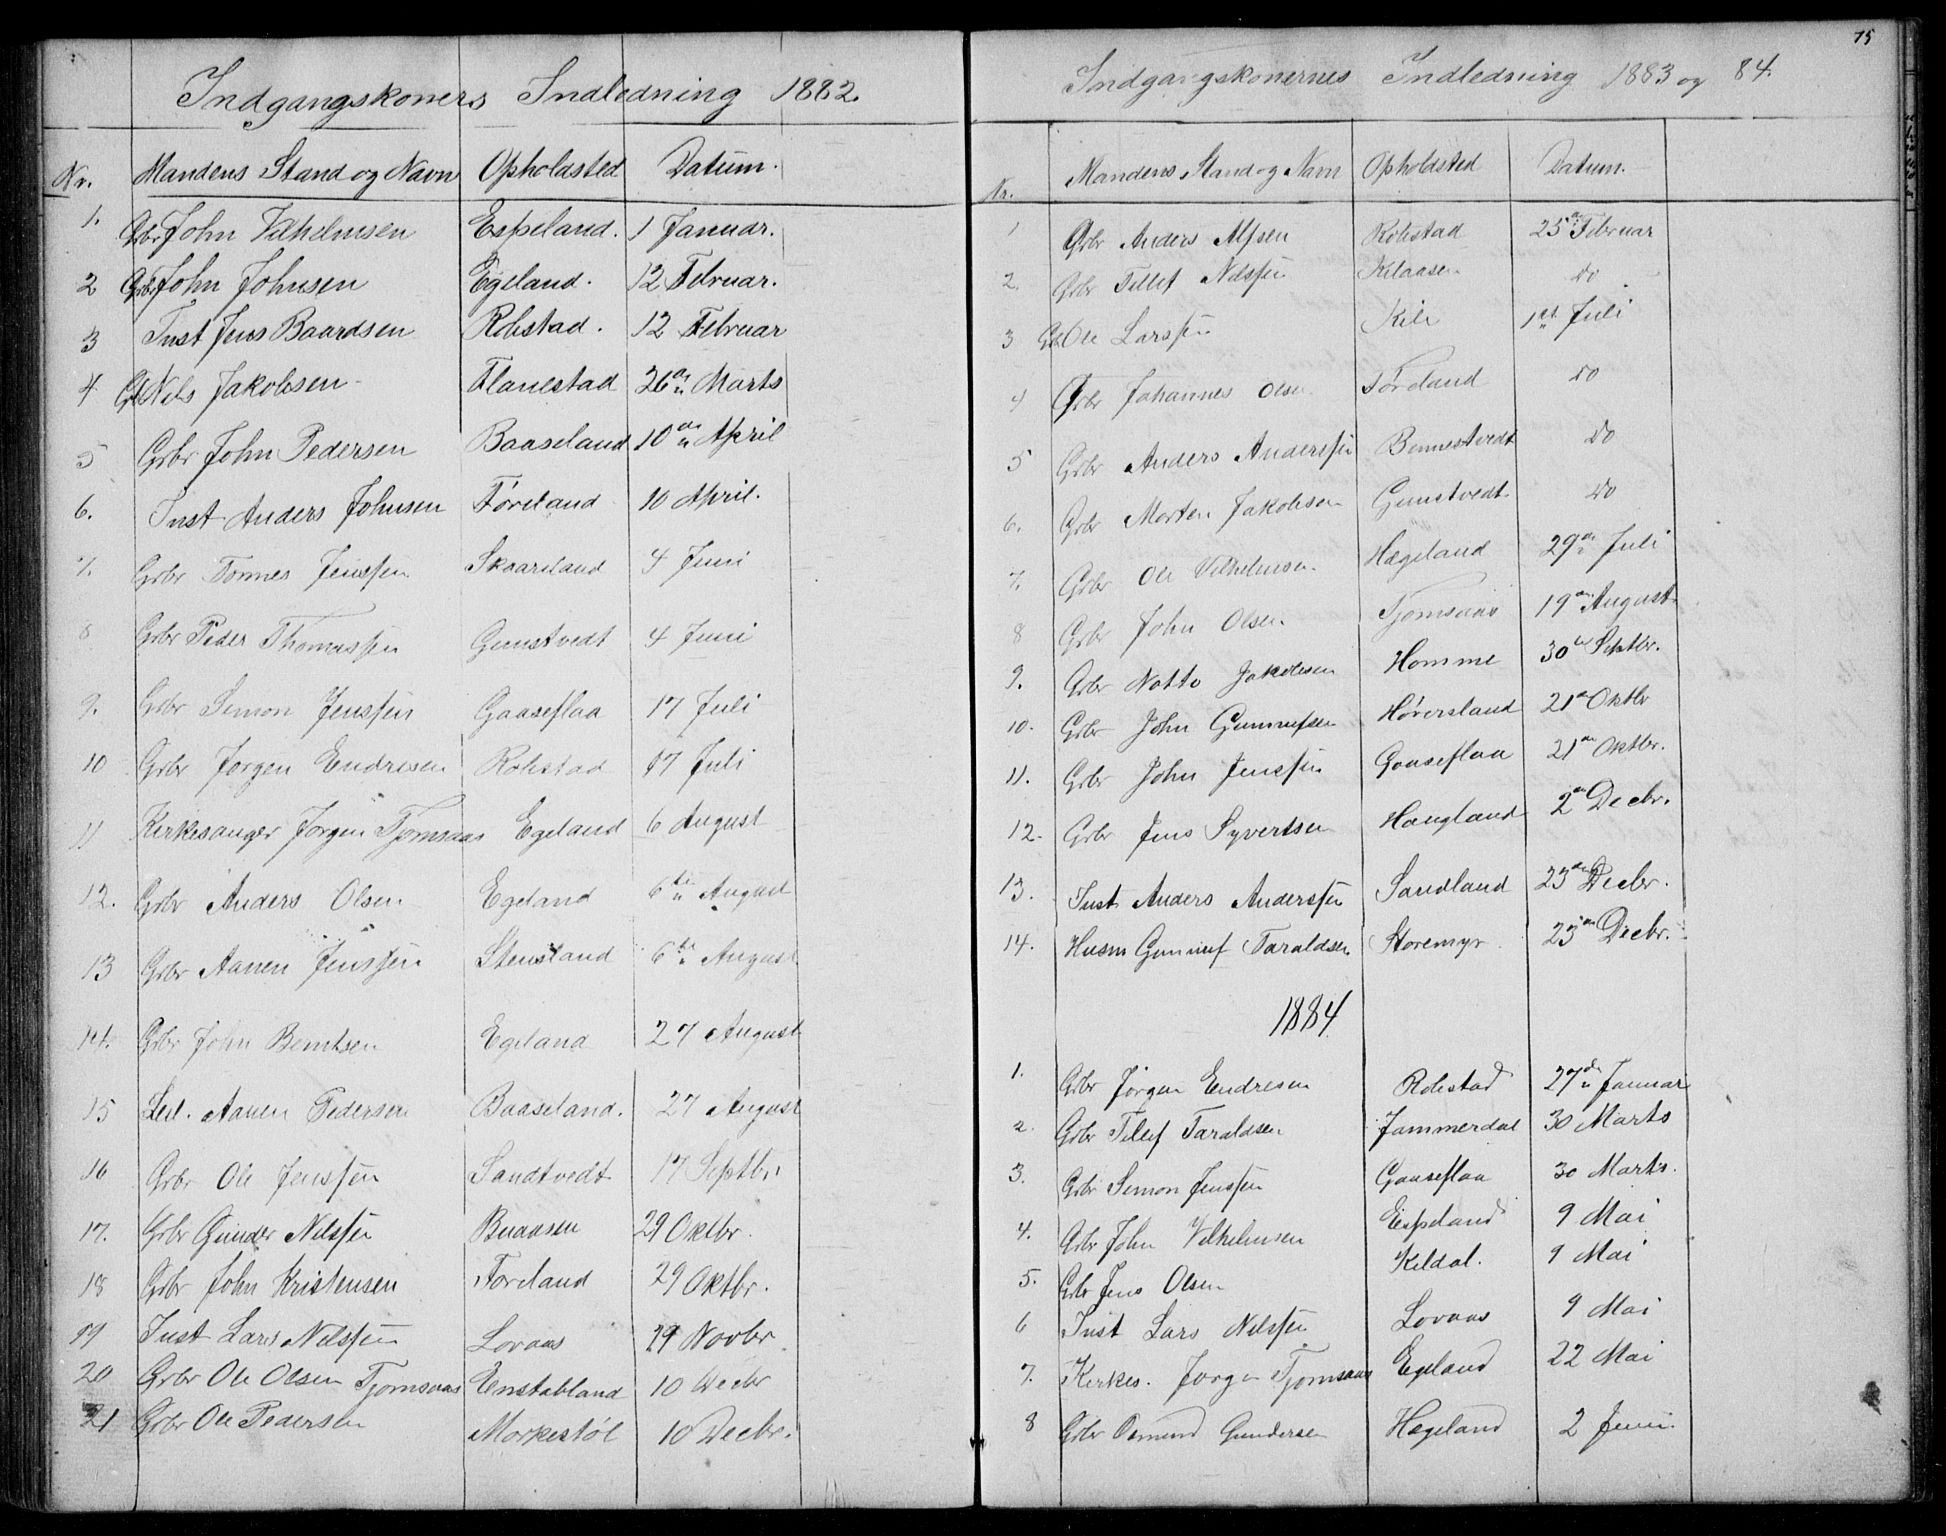 Indgangskoners Indledning 1882.
Nr. Mandens Stand og Navn Opholdsted Datum.
1. Grbr John Vilhelmsen Espeland. 1 Januar.
2 Grbr John Johnsen Egeland. 12 Februar.
3 Inst Jens Baardsen Robstad. 12 Februar
4 Gb Nels Jakobsen Flanestad 26de Marts
5 Grbr John Pedersen Baaseland 10de April
6. Inst Anders Johnsen Føreland 10 April.
7. Grbr Tønnes Jenssen Skaareland 4 Juni
8 Grbr Peder Thomassen Gumstvedt 4 Juni
9. Grbr Simon Jenssen Gaaseflaa 17 Juli
10 Grbr Jørgen Endresen Robstad 17 Juli
11 Kirkesanger Jørgen Tjomsaas Egeland 6 August
12. Grbr Anders Olsen Egeland 6te August
13 Grbr Aanen Jenssen Stensland 6te August
14. Grbr John Berntsen Egeland 27 August
15 Leil. Aanen Pedersen Baaseland. 27 August
16 Grbr Ole Jenssen Sandtvedt 17 Septbr
17. Grbr Gunder Nilssen 29 Oktbr.
18 Grbr John Kristensen Føreland 29 Oktbr.
19 Inst Lars Nilssen Lovaas 29 Novbr
20 Grbr Ole Olsen Tjomsaas Enstabland 10 Decbr
21 Grbr Ole Pedersen Mørkestøl 10 Decbr.
75
Indgangskonernes Indledning 1883 og 84.
Nr. Mandens Stand og Navn Opholdsted Datum.
1 Grbr Anders Alfsen Robstad 25de Februar
2. Grbr Tellef Nilssen Kilaasen do
3 Gb Ole Larssen Kile 1ste Juli
4 Grbr Johannes Olsen Føreland do
5 Grbr Anders Anderssen Bennestvedt do
6. Grbr Morten Jakobsen Gumstvedt. do
7. Grbr Ole Vilhelmsen. Hægeland 29de Juli
8 Grbr John Olsen. Tjomsaas 19de August
9. Grbr Notto Jakobsen Homme 30te Septbr.
10. Grbr John Gunnufsen Høversland 21de Oktbr
11. Grbr John Jenssen Gaaseflaa 21de Oktbr.
12. Grbr Jens Syvertsen Haugland 2den Decbr.
13. Inst Anders Anderssen Sandland 23de Decbr.
14. Husm Gunnuf Taraldsen. Storemyr. 23de Decbr.
1884.
1. Grbr Jørgen Endresen Robstad 27de Januar
2. Grbr Tellef Taraldsen Jammerdal 30 Marts
3. Grbr Simon Jenssen Gaaseflaa 30 Marts.
4. Grbr John Vilhelmsen Espeland 9 Mai
5. Grbr Jens Olsen Kildal. 9 Mai
6 Inst Lars Nilssen Lovaas 9 Mai
7. Kirkes. Jørgen Tjomsaas Egeland 22 Mai
8 Grbr Osmund Gundersen Hægeland 2 Juni